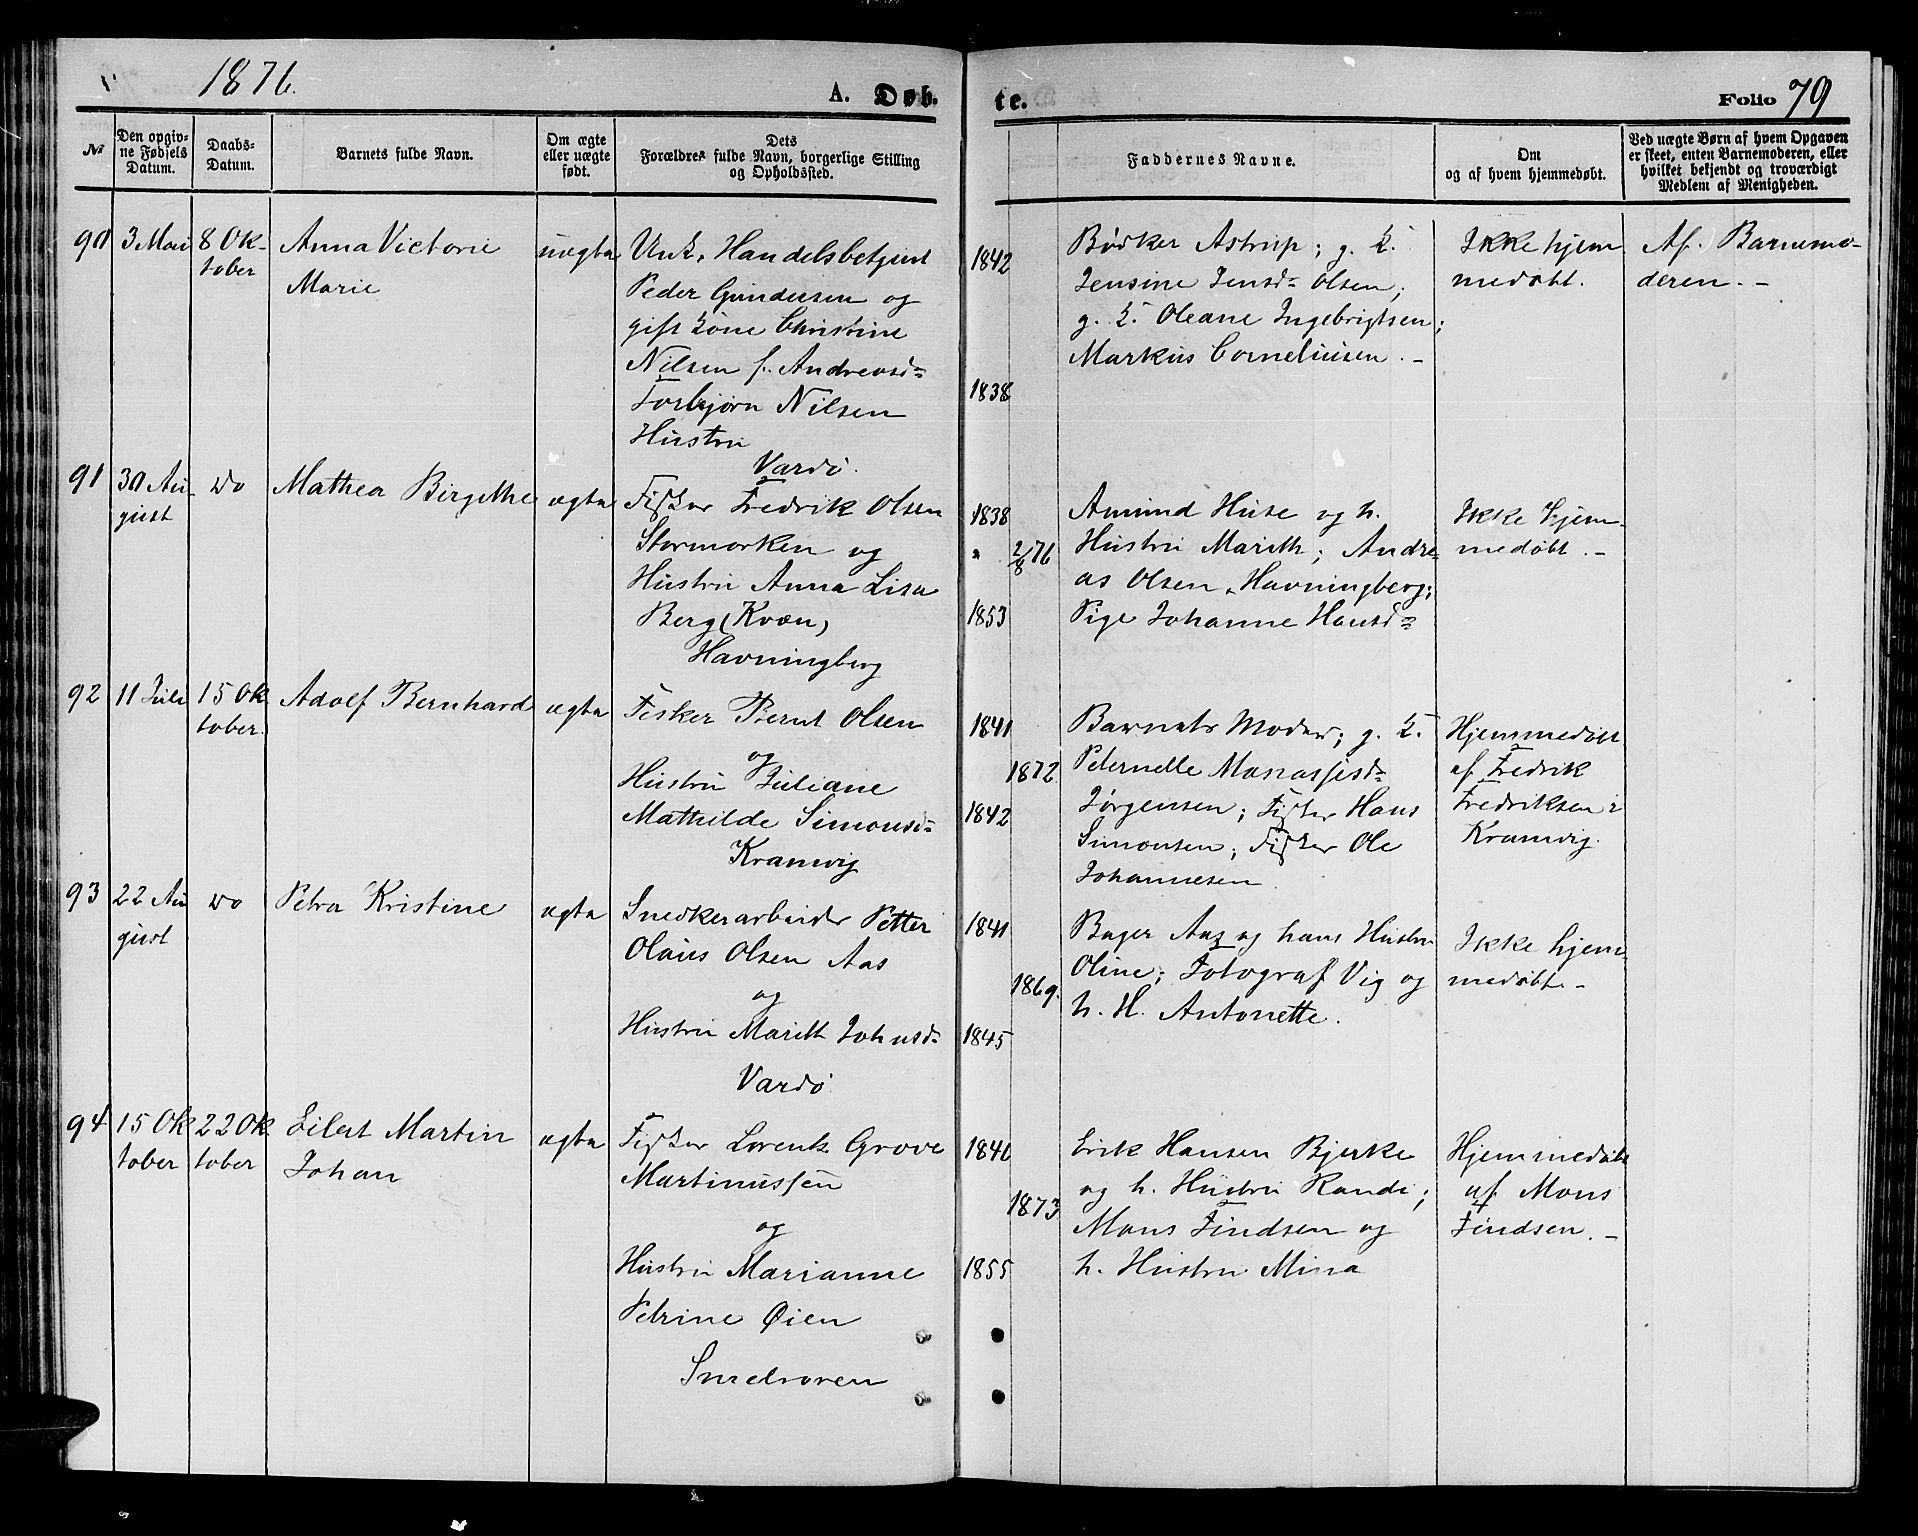 1876.
A. Døb-
te.
Folio 79
№
Den opgiv-
ne Fødsels
Datum.
Daabs-
Datum.
Barnets fulde Navn.
Om ægte
eller uægte
født.
Dets
Forældres fulde Navn, borgerlige Stilling
og Opholdssted.
Faddernes Navne.
Om
og af hvem hjemmedøbt.
Ved uægte Børn af hvem Opgaven
er skeet, enten Barnemoderen, eller
hvilket bekjendt og troværdigt
Medlem af Menigheden.
90
3 Mai
8 Ok-
tober
Anna Victorie
Marie
uægte
Unk. Handelsbetjent
Peder Gundersen og
gift Kone Christine
Nilsen f. Andreasd=
Torbjørn Nilsen
Hustru
Vardø.
1842
1838
Bødker Astrup; g. K.
Jensine Jensd= Olsen;
g. K. Oleane Ingebrigtsen;
Markus Corneliusen. -
Ikke hjem
medøbt.
Af Barnemo-
deren. -
91
30 Au-
gust
do
Mathea Birgithe
ægte
Fisker Fredrik Olsen
Stormorken og
Hustru Anna Lisa
Berg (Kvæn)
Havningberg
1838
2/8 76
1853
Amund Huse og h.
Hustru Marith; Andre-
as Olsen, Havningberg;
Pige Johanne Hansd=
Ikke hjem-
medøbt. -
92
11 Juli
15 Ok
tober.
Adolf Bernhard
ægte
Fisker Bernt Olsen
og
Hustru Juliane
Mathilde Simonsd=
Kramvig
1841
1872
1842
Barnets Moder; g. K.
Peternelle Manassesd=
Jørgensen; Fisker Hans
Simonsen; Fisker Ole
Johannesen.
Hjemmedøbt
af Fredrik
Fredriksen i
Kramvig.
93
22 Au
gust
do
Petra Kristine
ægte
Snedkerarbeider Petter
Olaus Olsen Aas
og
Hustru Marith Johnsd=
Vardø
1841
1869.
1845
Bager Aas og hans Hustru
Oline; Fotograf Vig og
h. H. Antonette.
Ikke hjem-
medøbt. -
94
15 Ok
tober
22 Ok
tober
Eilert Martin
Johan
ægte
Fisker Lorents Grove
Martinussen
og
Hustru Marianne
Petrine Øien
Smelroren
1840
1873
1855
Erik Hansen Bjerke
og h. Hustru Randi;
Mons Findsen og
h. Hustru Mina
Hjemmedøbt
af Mons
Findsen. -